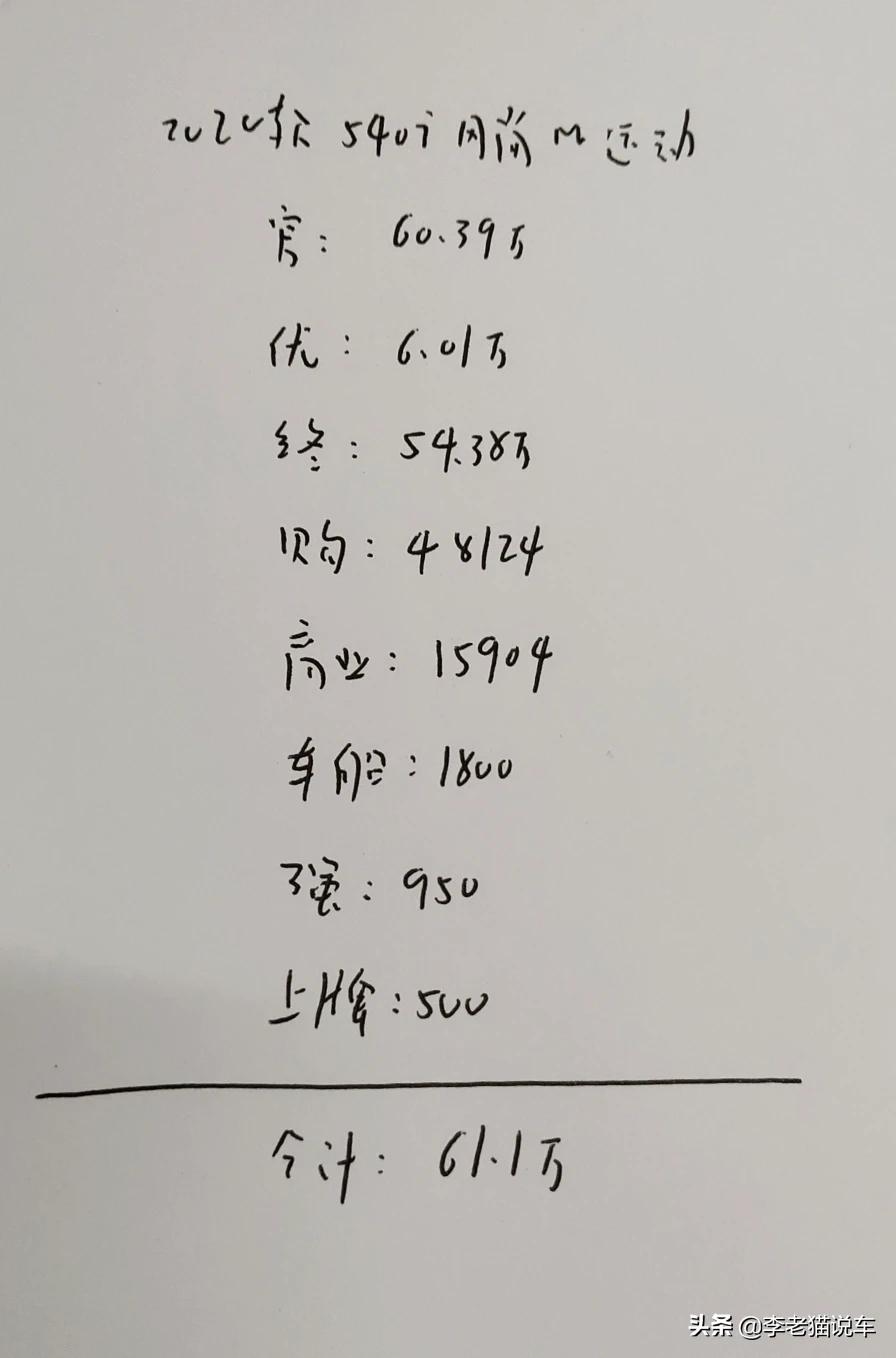 2020款 540i 风尚M运动
官: 60.39万
优: 6.01万
终: 54.38万
购: 48124
商业: 15904
车船: 1800
强: 950
上牌: 500
合计: 61.1万
头条 @李老猫说车